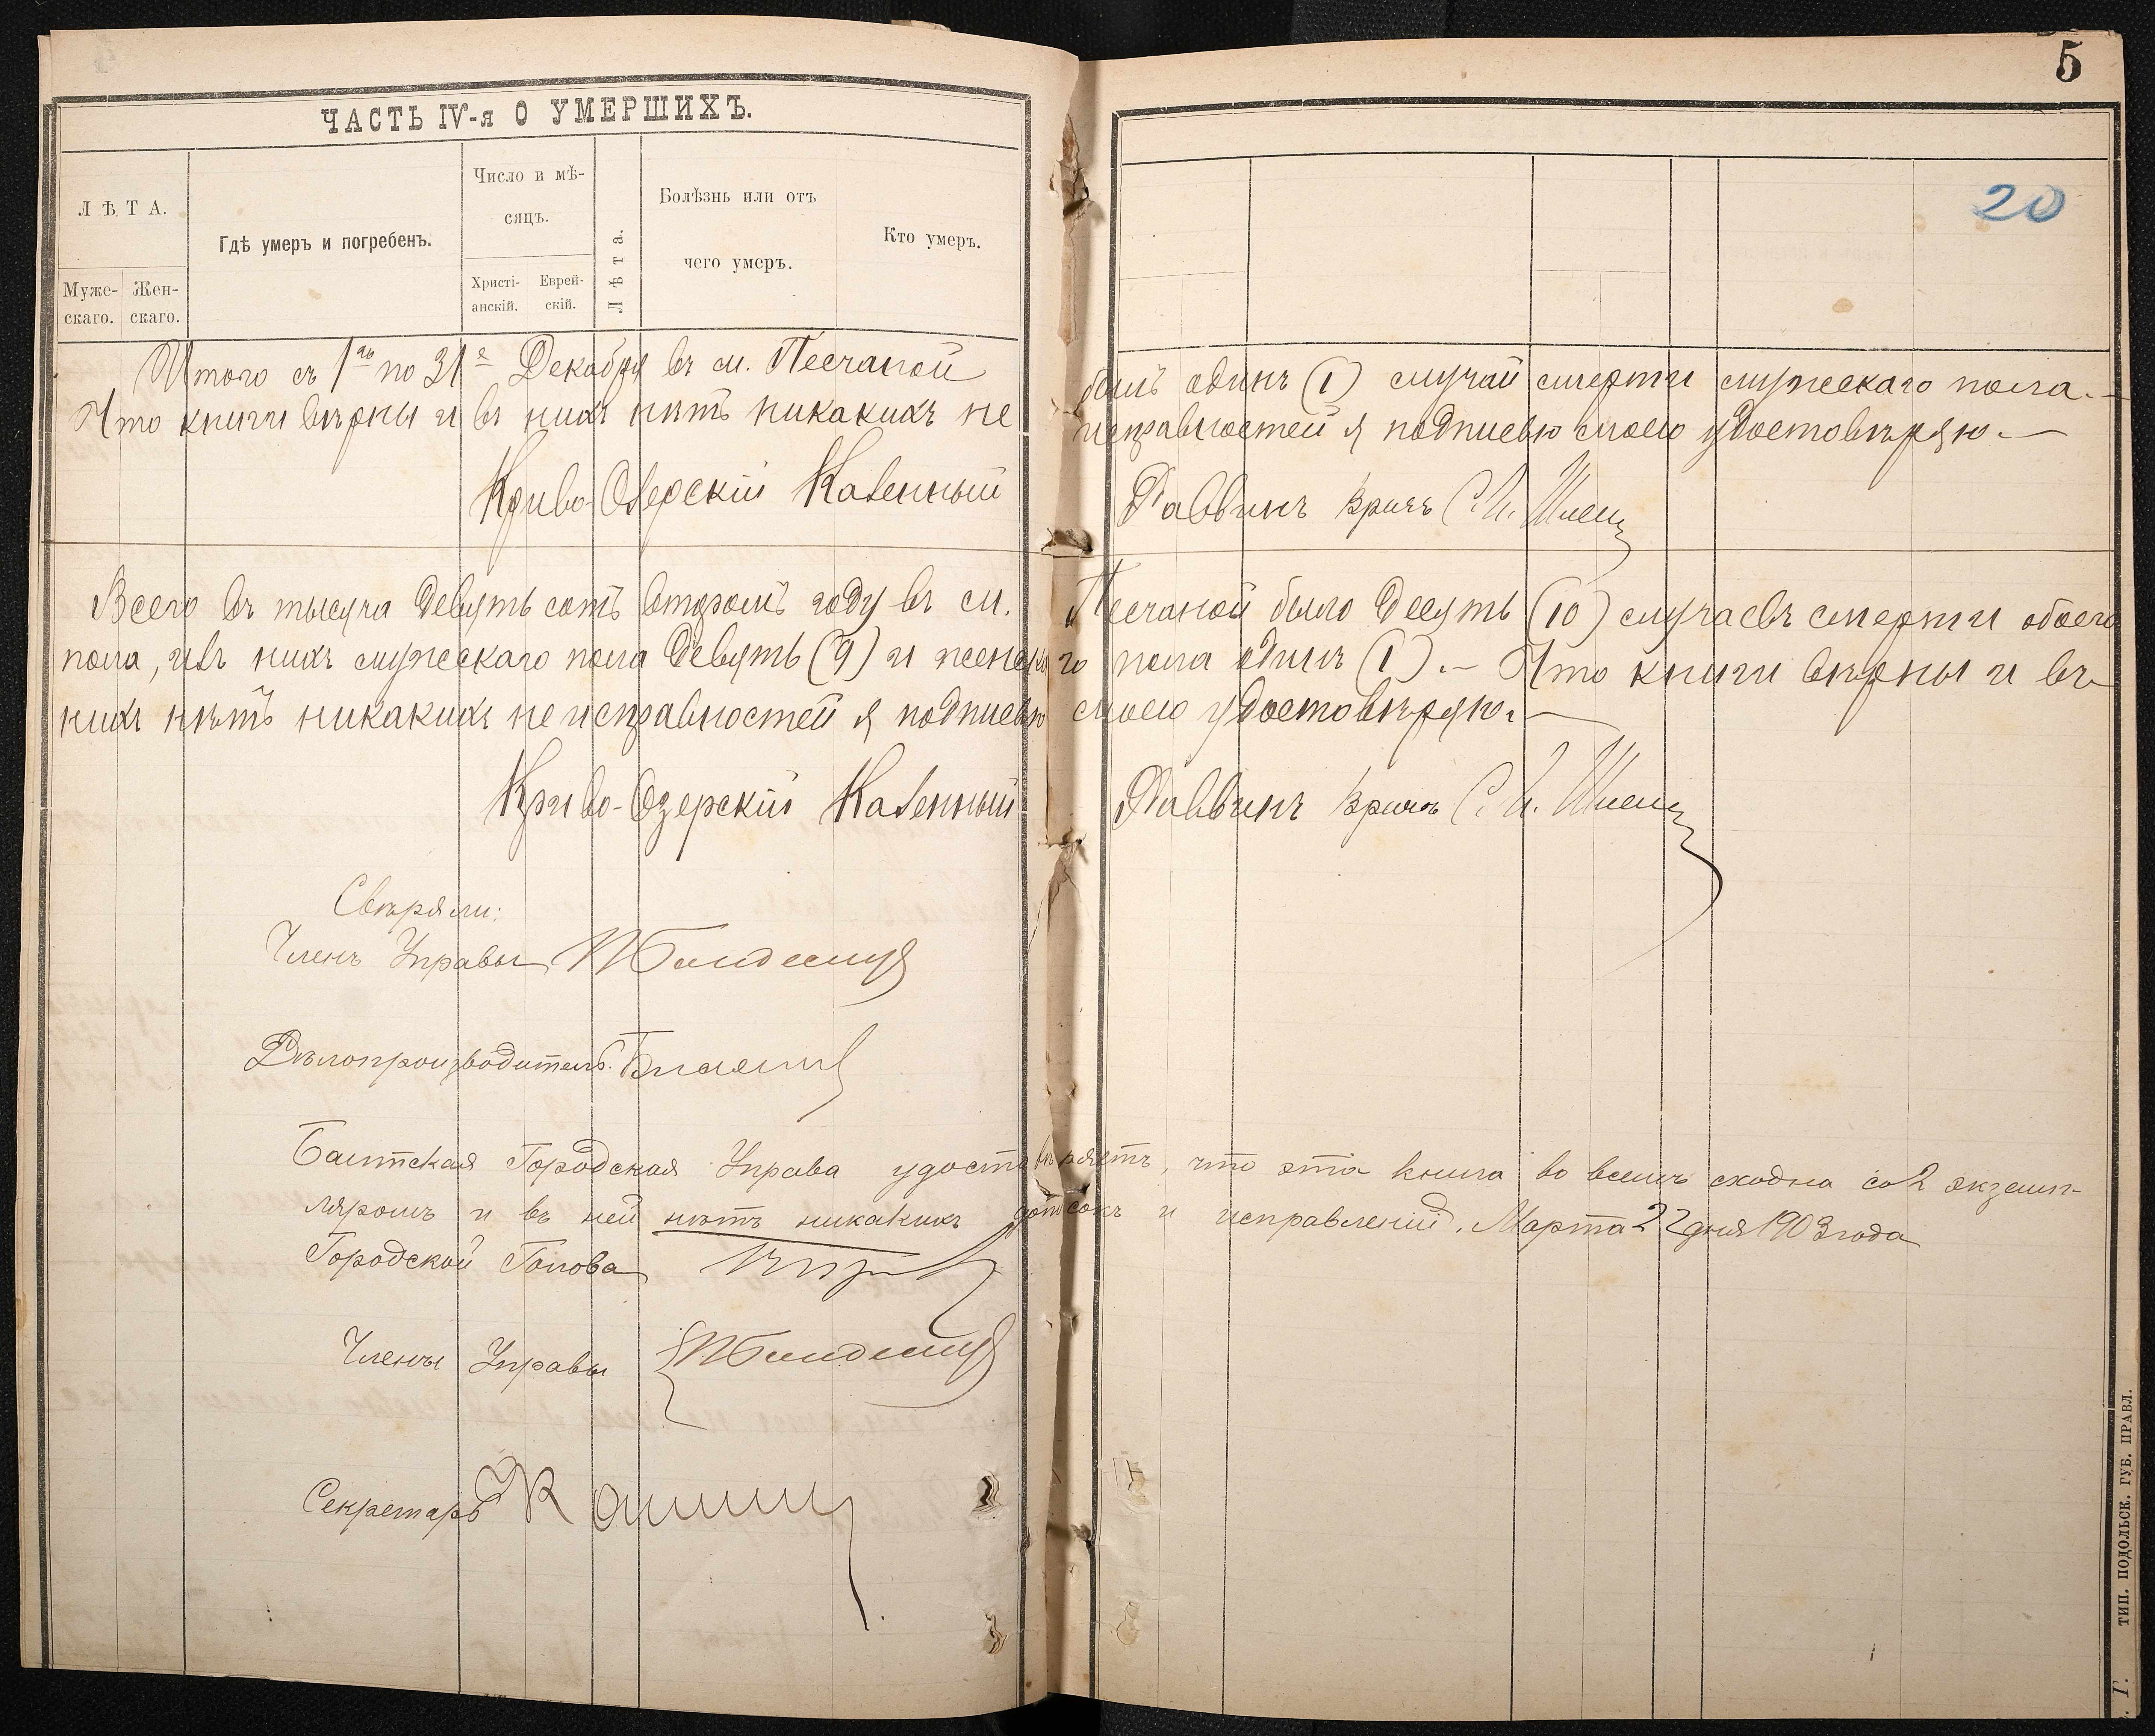 5
20
ЧАСТЬ IV-я О УМЕРШИХЪ.
ЛѢТА.
Муже-
скаго.
Жен-
скаго.
Гдѣ умеръ и погребенъ.
Число и мѣ-
сяцъ.
Христі-
анскій.
Еврей-
скій.
Лѣта.
Болѣзнь или отъ
чего умеръ.
Кто умеръ.
Итого съ 1го по 31е Декабря въ м. Песчаной былъ одинъ (1) случай смерти мужескаго пола.—
Что книги вѣрны и въ нихъ нѣтъ никакихъ не исправностей я подписью своею удостовѣряю.—
Криво-Озерскій Казенный Раввинъ врачъ С. И.
Всего въ тысяча девять сотъ второмъ году въ м. Песчаной было десять (10) случаевъ смерти обоего
пола, изъ нихъ мужескаго пола девять (9) и женскаго пола одинъ (1).— Что книги вѣрны и въ
нихъ нѣтъ никакихъ не исправностей я подписью своею удостовѣряю.—
Криво-Озерскій Казенный Раввинъ врачъ С. И.
Свѣряли:
Членъ Управы
Дѣлопроизводитель
Балтская Городская Управа удостовѣряетъ, что эта книга во всемъ сходна со 2 экземп-
ляромъ и въ ней нѣтъ никакихъ и исправленій. Марта 22 дня 1903 года
Городской Голова
Члены Управы
Секретарь
ТИП. ПОДОЛЬСК. ГУБ. ПРАВЛ.